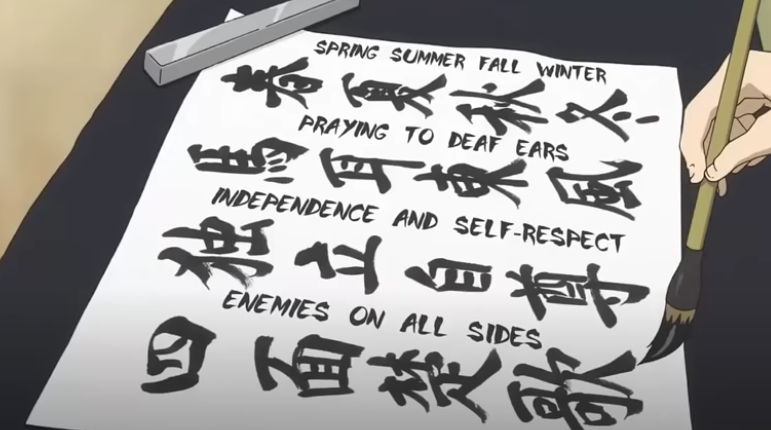 SPRING SUMMER FALL WINTER
春夏秋冬
PRAYING TO DEAF EARS
馬耳東風
INDEPENDENCE AND SELF-RESPECT
独立自尊
ENEMIES ON ALL SIDES
四面楚歌